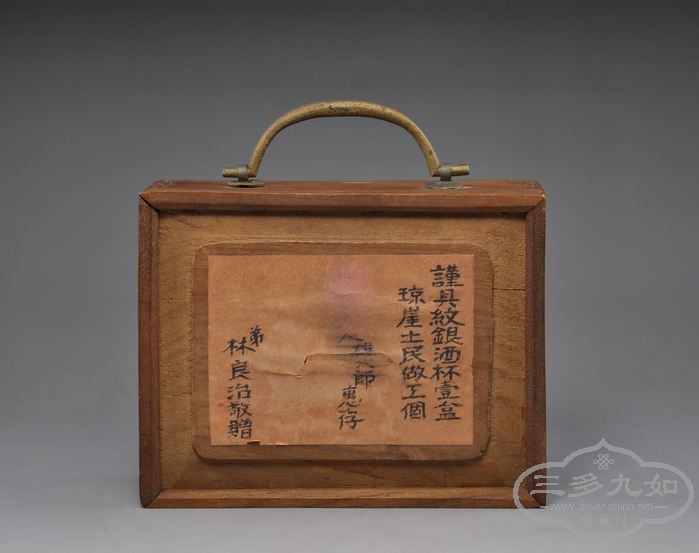 謹具紋銀酒杯壹盒
琼崖土民做工個
郎
惠存
弟
林良治敬贈
三多九如
www.silver-china.net